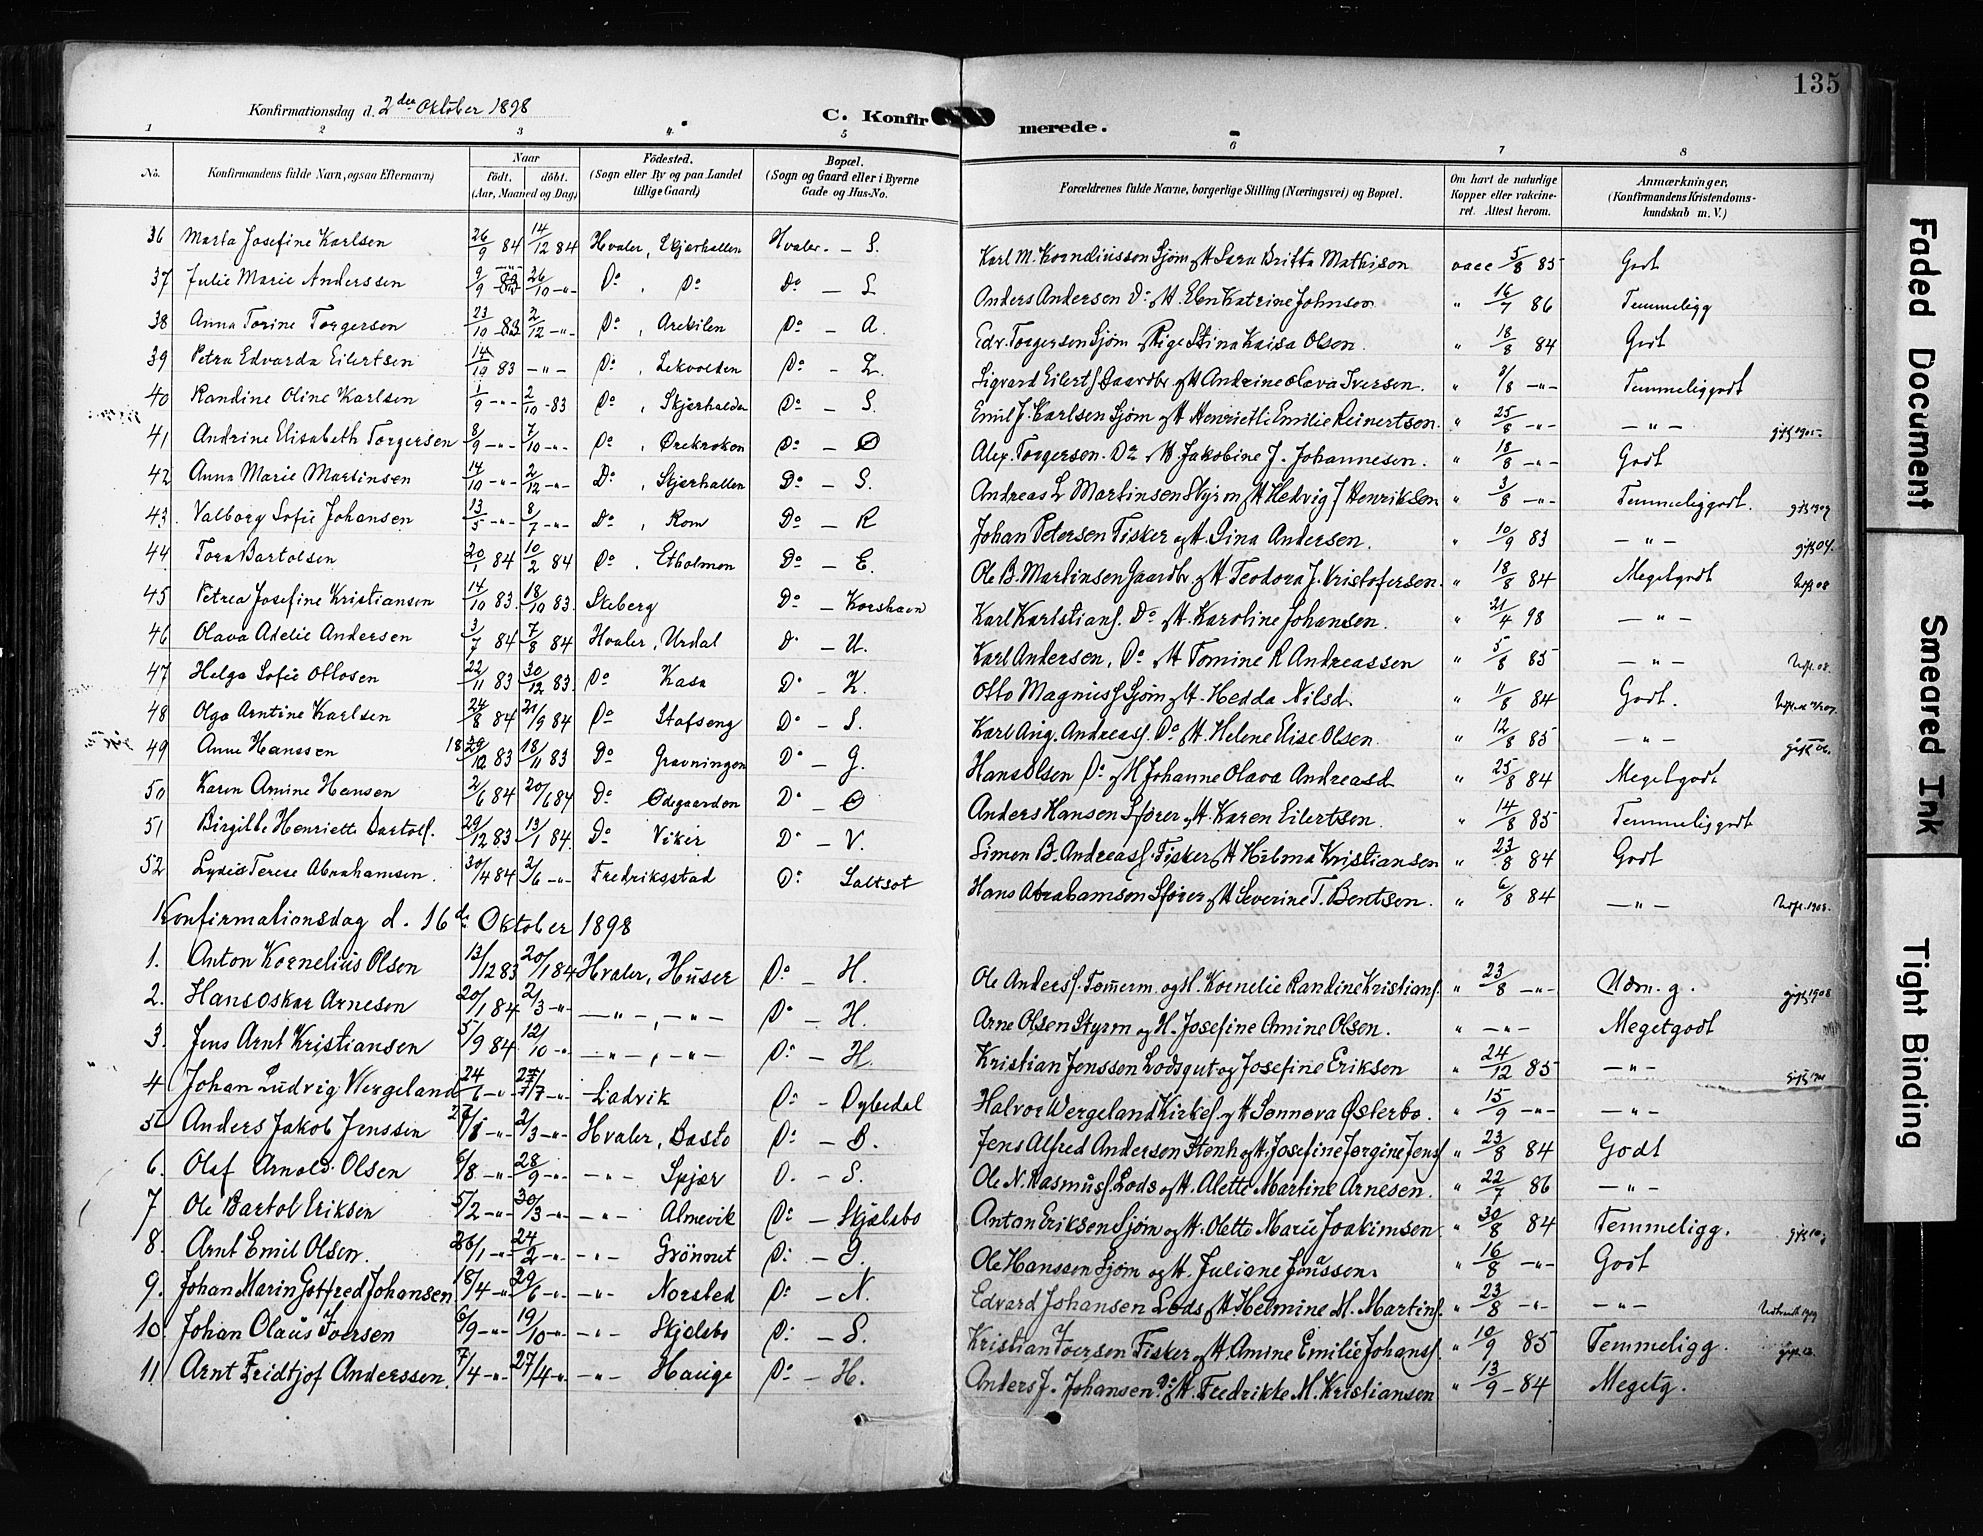 135
Konfirmationsdag d. 2den Oktober 1898
C. Konfirmerede.
1 2 3 4 5 6 7 8
No. Konfirmandens fulde Navn, ogsaa Efternavn) Naar født. døbt. (Aar, Maaned og Dag) Fødested. (Sogn eller By og paa Landet tillige Gaard) Bopæl. (Sogn og Gaard eller i Byerne Gade og Hus-No. Forældrenes fulde Navne, borgerlige Stilling (Næringsvei) og Bopæl. Om havt de naturlige Kopper eller vakcineret. Attest herom. Anmærkninger, (Konfirmandens Kristendomskundskab m. V.)
36 Marta Josefine Karlsen 26/9 84 14/12 84 Hvaler, Skjærhallen Hvaler. - S. Karl M. Korneliusson Sjøm og H. Sara Britta Mathison vacc 5/8 85 Godt
37 Julie Marie Anderssen 9/9 83 26/10 -"- Do , Do Do - S Anders Andersen Do og H. Elen Katrine Johnsen " 16/7 86 Temmeligg
38 Anna Torine Torgersen 23/10 83 2/12 -"- Do , Arekilen Do - A. Edv. Torgersen Sjøm Pige Stina Kaisa Olsen. " 18/8 84 Godt
39 Petra Edvarda Eilertsen 14/10 83 -"- Do , Lekvolden Do - L. Sigvard Eilerts Gaardbr og H Andrine Olava Iversen. " 3/8 -"- Temmeliggodt
40 Randine Oline Karlsen 1/9 -"- 2/10 -83 Do , Skjærhalden Do - S. Emil J. Karlsen Sjøm og H Henriette Emilie Reinertsen. " 25/8 -"- -"-
41 Andrine Elisabeth Torgersen 8/9 -"- 7/10 -"- Do , Ørekroken Do - Ø Alex. Torgersen. Do og H. Jakobine J. Johannesen. " 18/8 -"- Godt gift 1905
42 Anna Marie Martinsen 14/10 -"- 2/12 -"- Do , Skjærhallen Do - S. Andreas L Martinsen Styrm og H Hedvig J Henriksen " 3/8 -"- Temmeliggodt.
43. Valborg Sofie Johansen 13/5 -"- 8/7 -"- Do , Rom Do - R Johan Petersen Fisker og H. Gina Andersen. " 10/9 83 -"- gift 1907
44 Tora Bartolsen 20/1 84 10/2 84 Do , Etholmen Do - E. Ole B. Martinsen Gaardbr. og H Teodora J. Kristofersen. " 18/8 84 Megetgodt gift 04.
45 Petrea Josefine Kristiansen 14/10 83. 18/10 83. Skeberg Do - Korshavn Karl Karlstians. Do H. Karoline Johansen. " 21/4 98 -"- Utfl. 08
46 Olava Adelie Andersen 3/7 84 7/8 84 Hvaler, Urdal D - U. Karl Andersen, Do H Tomine R Andreassen " 5/8 85 -"-
47 Helga Sofie Ottosen 22/11 83 30/12 83. Do Kasa Do - K. Otto Magnuss Sjøm og H. Hedda Nilsd. " 11/8 84 Godt. Utfl. 08.
48 Olga Arntine Karlsen 24/8 84 21/9 84 Do Stafseng Do - S. Karl Aug. Andreass. Do H. Helene Elise Olsen. " 12/8 85 -"-
49 Anne Hanssen 18 29/10 83 18/11 83 Do Gravningen Do - G. Hans Olsen Do og H Johanne Olava Andreasd " 25/8 84 Megetgodt gift 06.
50 Karen Amine Hansen 2/6 84 20/6 84 Do Ødegaarden Do - Ø Anders Hansen Sfører og H. Karen Eilertsen. " 14/8 85 Temmeliggodt
51 Birgitte Henriette Bartols. 29/12 83 13/1 84. Do Viker Do - V. Simen B. Andreass. Fisker og H Hilma Kristiansen " 23/8 84 Godt
52 Lydia Terese Abrahamsen. 30/4 84 2/6 -"- Fredriksstad Do Saltsot Hans Abrahamsen Sfører og H Severine T. Bentsen. " 6/8 84 -"- Utfl. 1908.
Konfirmationsdag d. 16de Oktober 1898
1. Anton Kornelius Olsen 13/12 83 20/1 84 Hvaler, Huser Do - H. Ole Anders. Tømmerm. og H. Kornelie Randine Kristians. " 23/8 -"- Udm. g.
2. Hans Oskar Arnesen 20/1 84 2/3 -"- -"-, -"- Do - H. Arne Olsen Styrm og H. Josefine Amine Olsen. " -"- Megetgodt gift 1908
3. Jens Arnt Kristiansen 5/9 84 12/10 -"- -"-, -"- Do - H. Kristian Jenssen Lodsgut og Josefine Eriksen " 24/12 85 -"-
4 Johan Ludvig Wergeland 24/6 -"- 27/7 -"- Ladvik Do - Dybedal Halvor Wergeland Kirkes. og H Sønnøva Østerbo. " 15/9 -"- -"-
5 Anders Jakob Jenssen 27/1 -"- 2/3 -"- Hvaler, Basto Do - B. Jens Alfred Andersen Stenh og H. Josefine Jørgine Jens " 23/8 84 Godt
6. Olaf Arnold Olsen 6/8 -"- 28/9 -"- -"- Spjær D. - S. Ole N. Rasmus Lods og H. Alette Martine Arnesen. " 22/7 86 -"-
7 Ole Bartol Eriksen 5/2 -"- 30/3 -"- -"- Almevik Do - Skjælsbo Anton Eriksen Sjøm og H. Olette Marie Joakimsen " 30/8 84 Temmeligg.
8. Arnt Emil Olsen. 26/1 -"- 24/2 -"- -"- Grönnet Do - G. Ole Hanssen Sjøm og H. Juliane Jonassen. " 16/8 -"- Godt
9. Johan Marin Gotfred Johansen 18/4 -"- 29/6 -"- -"- Norsted Do - N. Edvard Johansen Lods og H Helmine M. Martins. " 23/8 -"- -"-
10. Johan Olaus Iversen 6/9 -"- 19/10 -"- -"- Skjelsbo Do - S. Kristian Iversen Fisker og H. Amine Emilie Johans. " 10/9 85 Temmeligg.
11. Arnt Fridtjof Anderssen. 7/4 -"- 27/4 -"- -"- Hauge Do - H. Anders J. Johansen Do og H. Fredrikke M. Kristiansen " 13/9 -84 Megetg.
Faded Document
Smeared Ink
Tight Binding